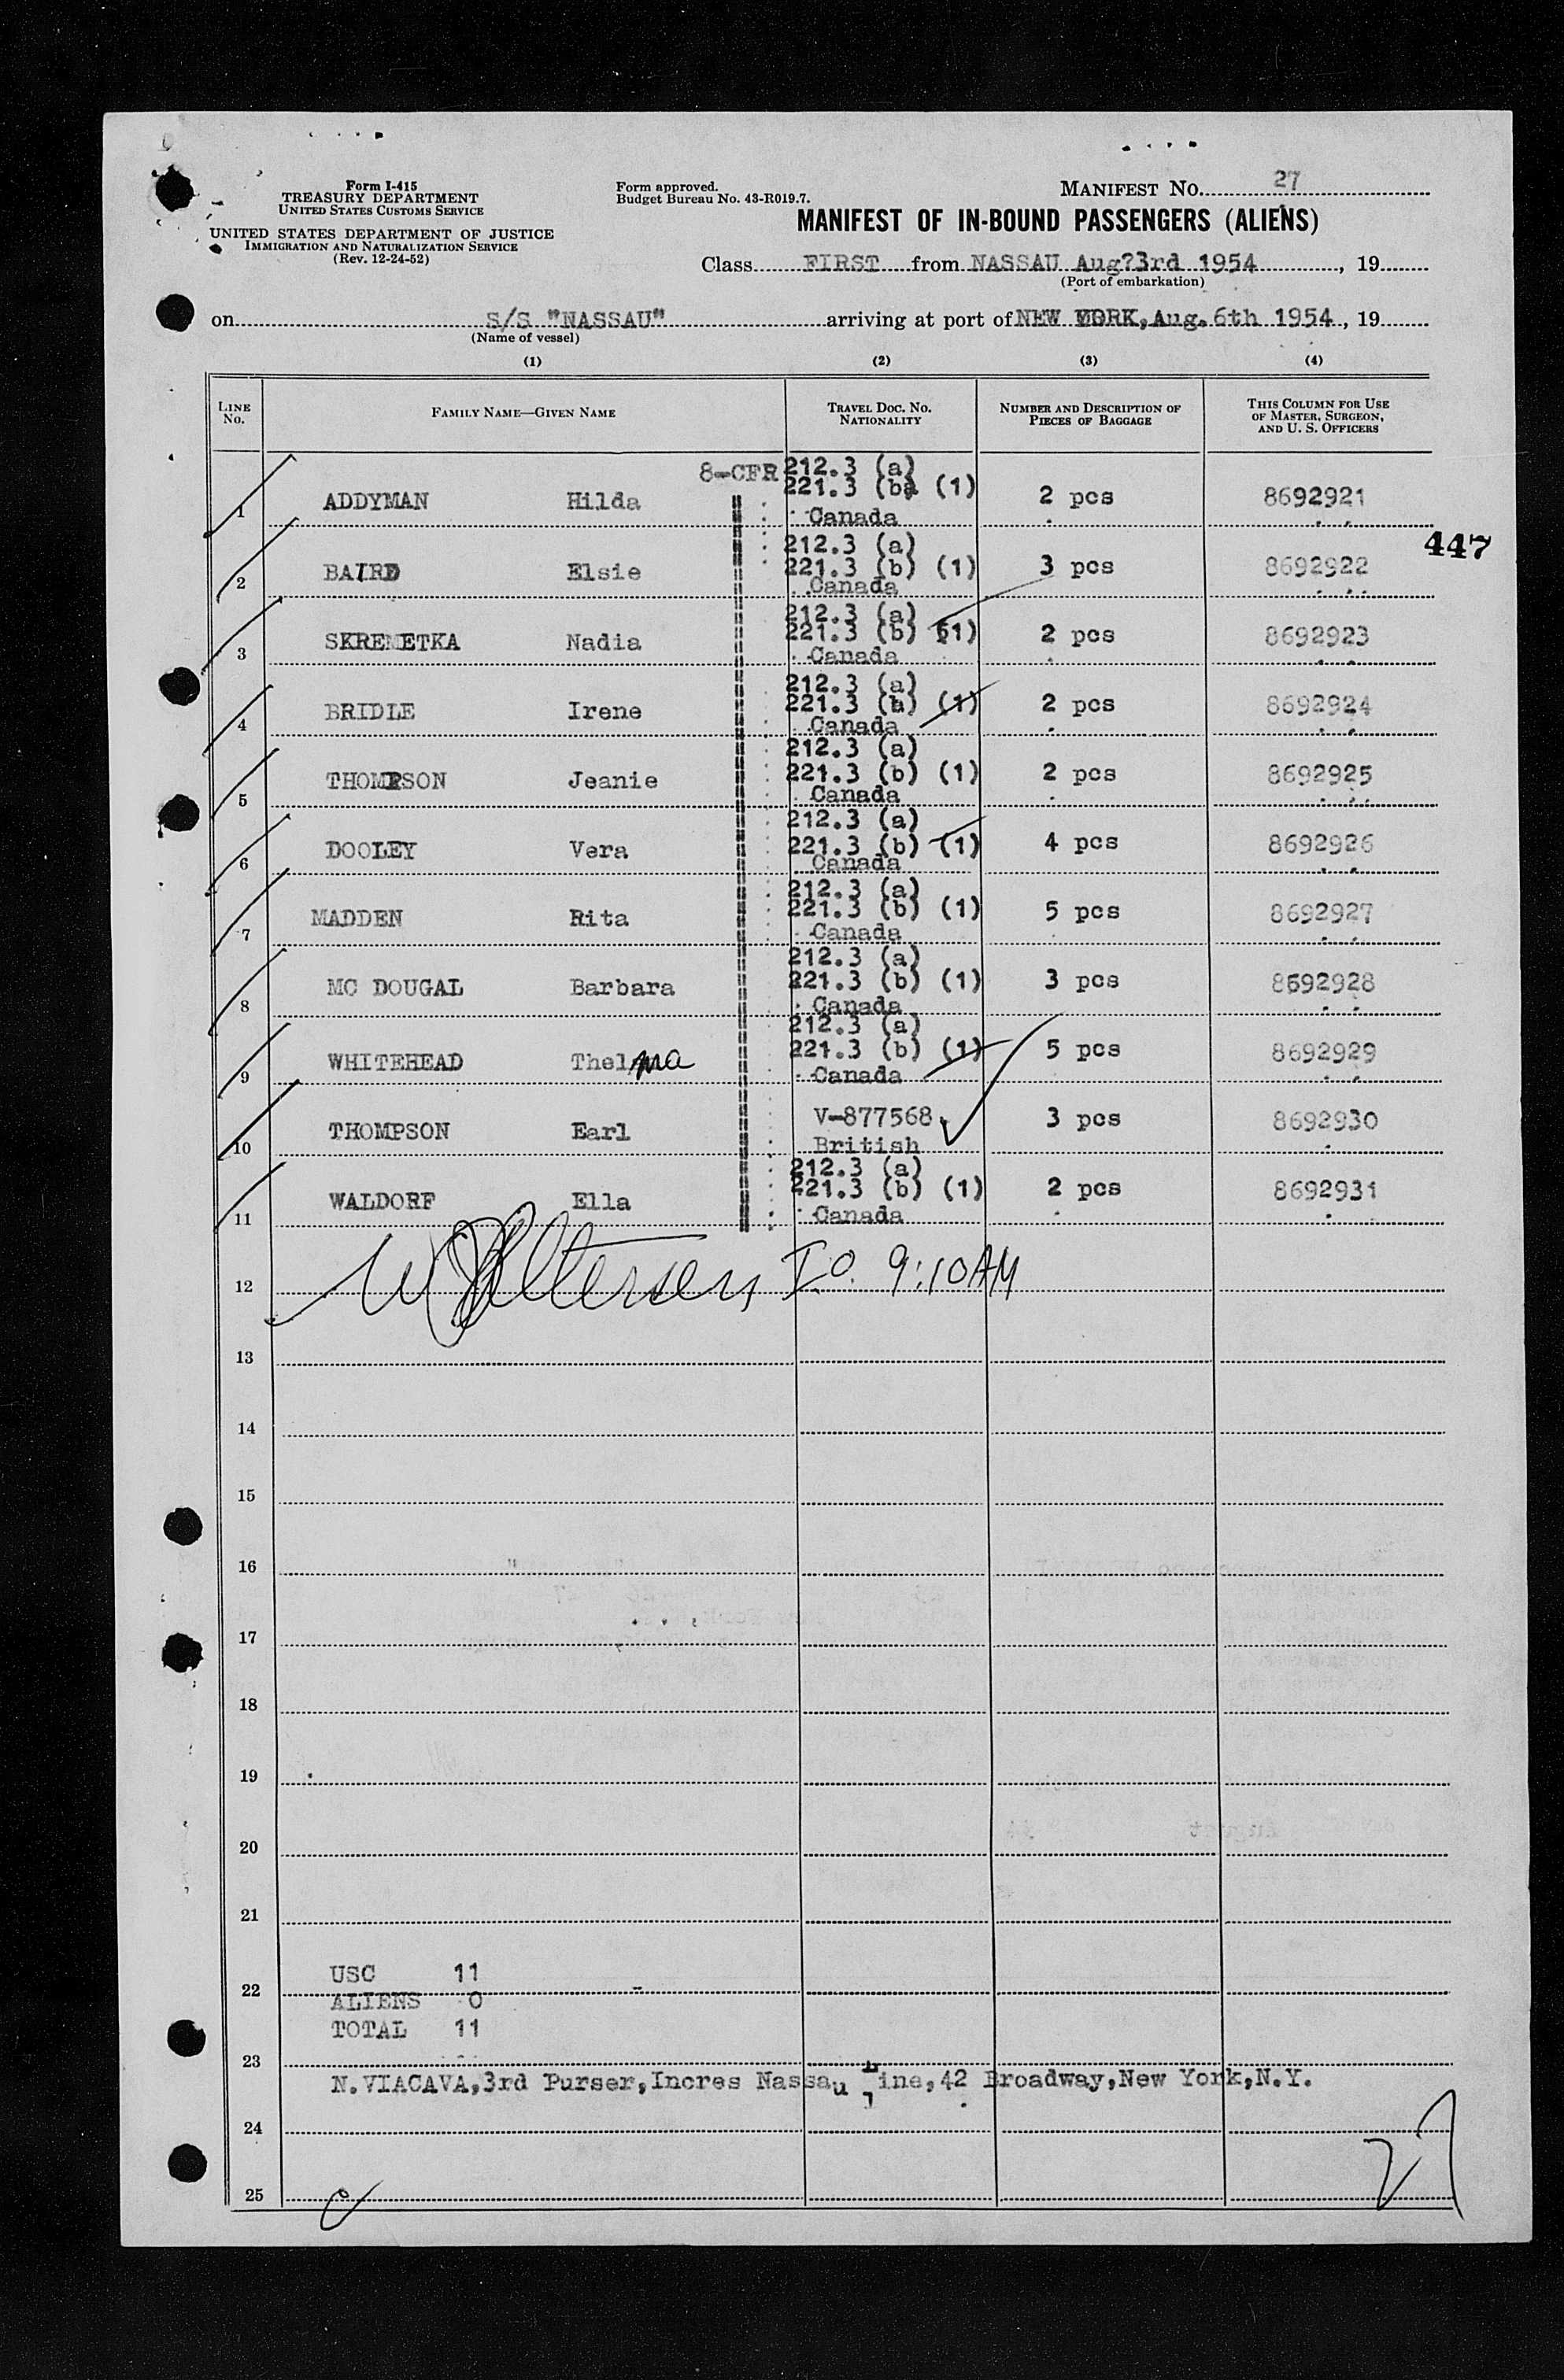 Form I-415
TREASURY DEPARTMENT
UNITED STATES CUSTOMS SERVICE
UNITED STATES DEPARTMENT OF JUSTICE
IMMIGRATION AND NATURALIZATION SERVICE
(Rev. 12-24-52)
Form approved.
Budget Bureau No. 43-R019.7.
MANIFEST NO. 27
MANIFEST OF IN-BOUND PASSENGERS (ALIENS)
Class FIRST from NASSAU Aug?3rd 1954, 19
(Port of embarkation)
on S/S "NASSAU" arriving at port of NEW YORK, Aug. 6th 1954, 19
(Name of vessel)
(1) (2) (3) (4)
LINE No. FAMILY NAME—GIVEN NAME TRAVEL DOC. NO. NATIONALITY NUMBER AND DESCRIPTION OF PIECES OF BAGGAGE THIS COLUMN FOR USE OF MASTER, SURGEON, AND U. S. OFFICERS
8-CFR 212.3 (a)
221.3 (ba (1)
1 ADDYMAN Hilda " Canada 2 pcs 8692921
447
212.3 (a)
2 BAIRD Elsie " 221.3 (b) (1) 3 pcs 8692922
Canada
212.3 (a)
221.3 (b) (1)
3 SKREMETKA Nadia " Canada 2 pcs 8692923
212.3 (a)
4 BRIDLE Irene " 221.3 (b) (1) 2 pcs 8692924
Canada
212.3 (a)
5 THOMPSON Jeanie " 221.3 (b) (1) 2 pcs 8692925
Canada
212.3 (a)
6 DOOLEY Vera " 221.3 (b) (1) 4 pcs 8692926
Canada
212.3 (a)
7 MADDEN Rita " 221.3 (b) (1) 5 pcs 8692927
Canada
212.3 (a)
8 MC DOUGAL Barbara " 221.3 (b) (1) 3 pcs 8692928
Canada
212.3 (a)
9 WHITEHEAD Thelma " 221.3 (b) (1) 5 pcs 8692929
Canada
10 THOMPSON Earl " V-877568 3 pcs 8692930
British
212.3 (a)
11 WALDORF Ella " 221.3 (b) (1) 2 pcs 8692931
Canada
12 I.O. 9:10AM
13
14
15
16
17
18
19
20
21
USC 11
22
ALIENS 0
TOTAL 11
23
N.VIACAVA,3rd Purser,Incres Nassau Line,42 Broadway,New York,N.Y.
24
27
25